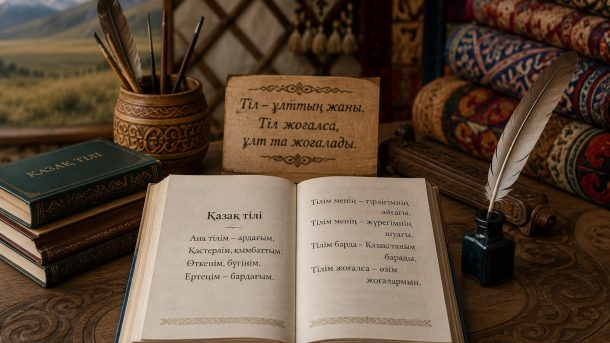 ҚАЗАҚ ТІЛІ
Тіл – ұлттың жаны.
Тіл жоғалса,
ұлт та жоғалады.
Қазақ тілі
Ана тілім – ардағым,
Қастерлім, қымбаттым,
Өткенім, бүгінім,
Ертеңім – бардағым.
Тілім менің – тірлігімнің
айғағы,
Тілім менің – жүрегімнің
шуағы.
Тілім барда – Қазақстаным
барады,
Тілім жоғалса – өзім
жоғалармын.